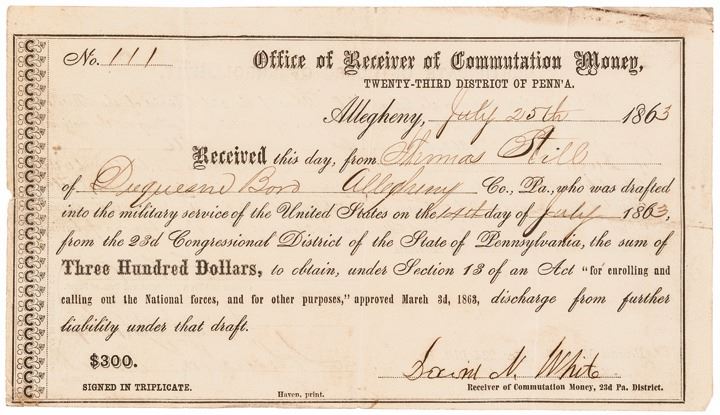 No. 111 Office of Receiver of Commutation Money,
TWENTY-THIRD DISTRICT OF PENN'A.
Allegheny, July 25th 1863
Received this day, from Thomas
of Duquesne Boro Allegheny Co., Pa., who was drafted
into the military service of the United States on the 14th day of July 1863,
from the 23d Congressional District of the State of Pennsylvania, the sum of
Three Hundred Dollars, to obtain, under Section 13 of an Act "for enrolling and
calling out the National forces, and for other purposes," approved March 3d, 1863, discharge from further
liability under that draft.
$300. David N. White
SIGNED IN TRIPLICATE. Haven, print. Receiver of Commutation Money, 23d Pa. District.